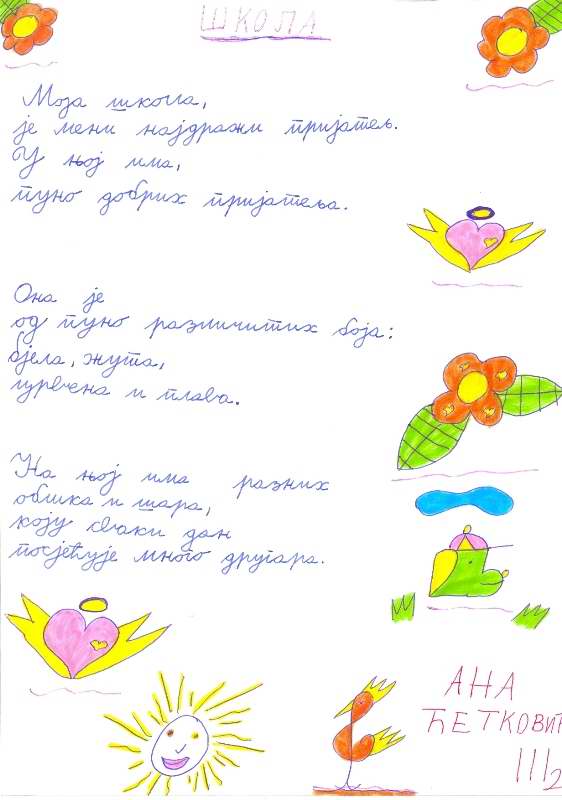 ШКОЛА
Моја школа,
је мени најдражи пријатељ.
У њој има,
пуно добрих пријатеља.
Она је
од пуно различитих боја:
бјела, жута,
црвена и плава.
На њој има разних
облика и шара,
коју сваки дан
посјећује много другара.
АНА
ЋЕТКОВИЋ
III2